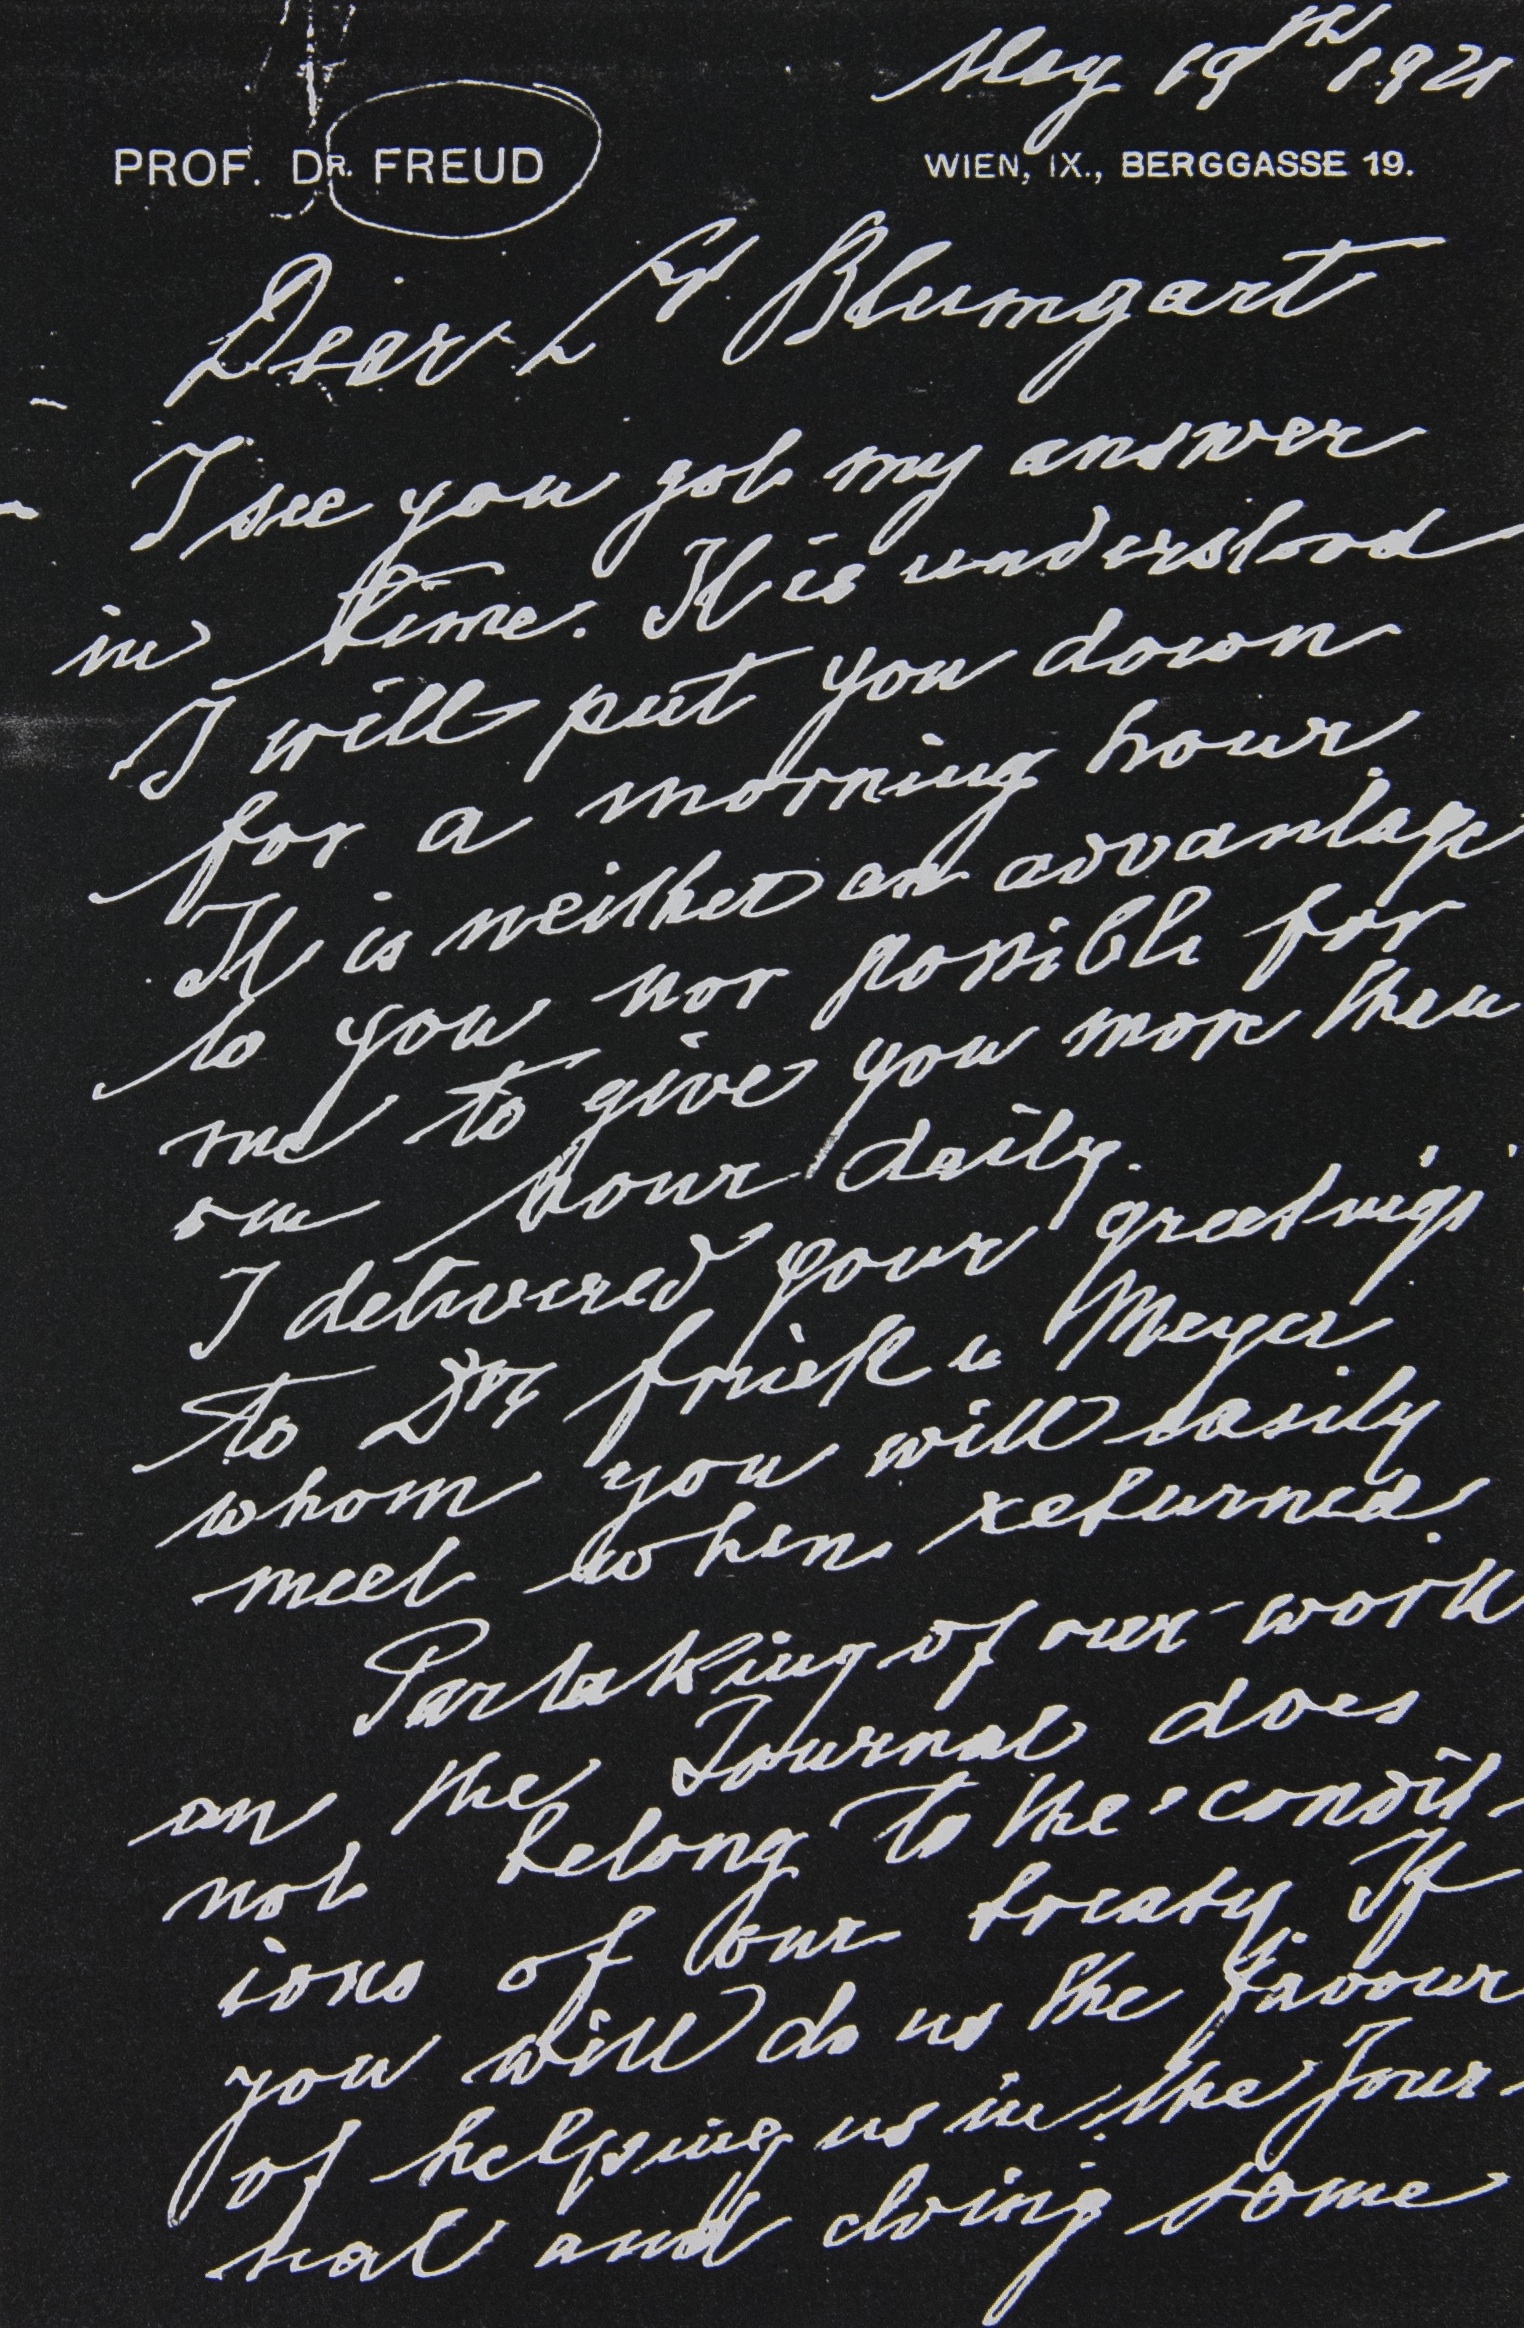 May 19th 1921
PROF. DR. FREUD
WIEN, IX., BERGGASSE 19.
Dear Dr Blumgart
I see you got my answer
in time. It is understood
I will put you down
for a morning hour.
It is neither an advantage
to you nor possible for
me to give you more then
one hour daily.
I delivered your greetings
to Drs Frink u Meyer
whom you will easily
meet when returned.
Partaking of our work
on the Journal does
not belong to the condit-
ions of our treaty. If
you will do us the favour
of helping us in the Jour-
nal and doing some